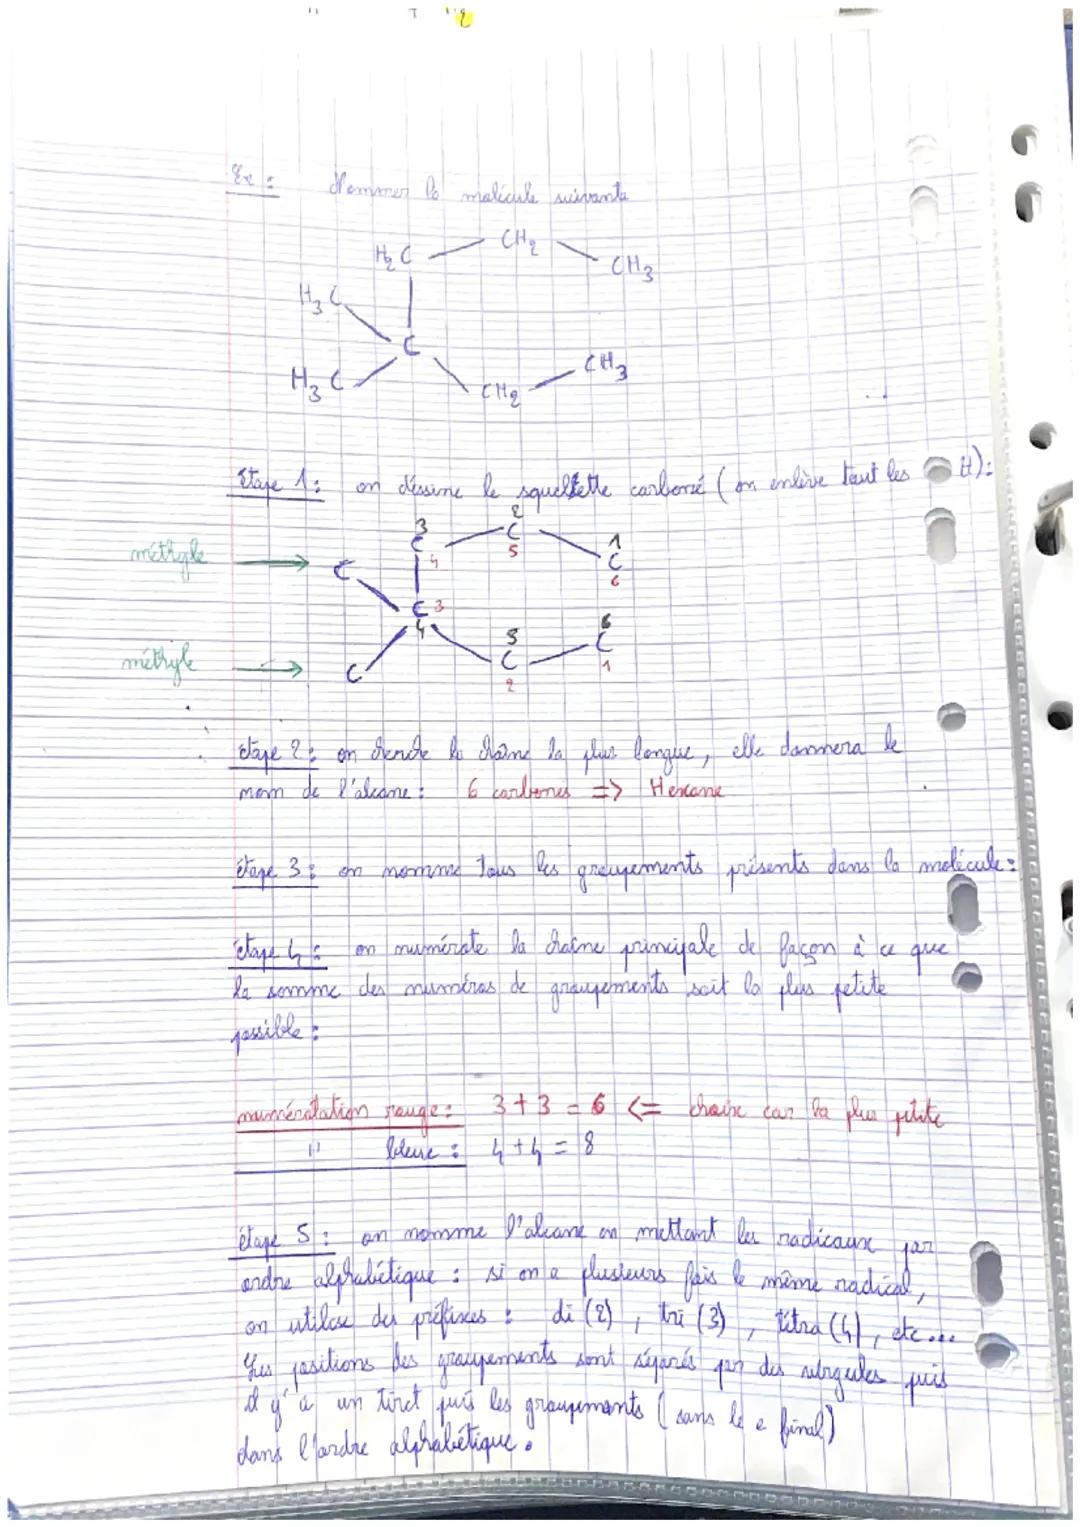 Ex : Nommer la molécule suivante
H2C CH2 CH3
H3C
C
H3C CH2 CH3
étape 1 : on dessine le squelette carboné (on enlève tout les H) :
3 2 1
méthyle C C C C
4 5 6
C 3
4 5 6
méthyle C C C
2 1
étape 2 : on cherche la chaîne la plus longue, elle donnera le
nom de l'alcane : 6 carbones => Hexane
étape 3 : on nomme tous les groupements présents dans la molécule :
étape 4 : on numérote la chaîne principale de façon à ce que
la somme des numéros de groupements soit la plus petite
possible :
numérotation rouge : 3 + 3 = 6 <= choix car la plus petite
" bleue : 4 + 4 = 8
étape 5 : on nomme l'alcane en mettant les radicaux par
ordre alphabétique : si on a plusieurs fois le même radical,
on utilise des préfixes : di (2), tri (3), tétra (4), etc...
Les positions des groupements sont séparés par des virgules puis
il y'a un tiret puis les groupements (sans le e final)
dans l'ordre alphabétique.